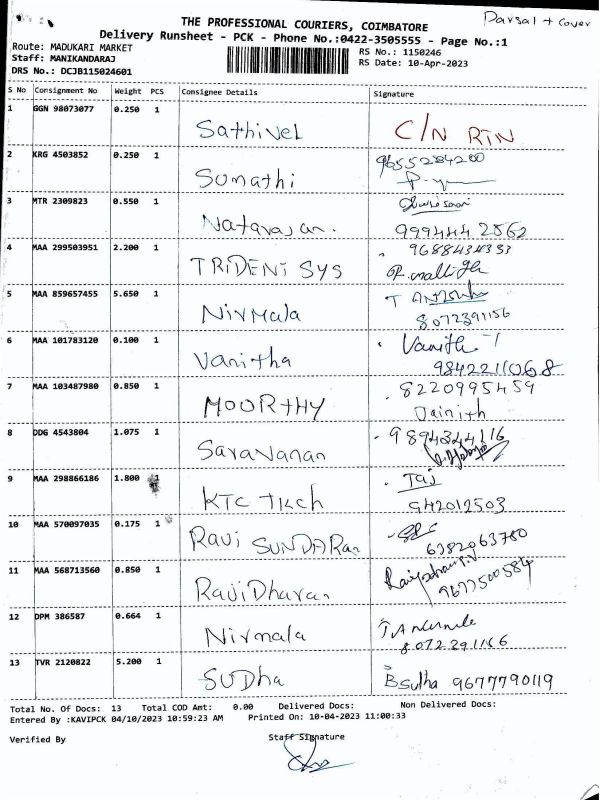 Parsal + cover
THE PROFESSIONAL COURIERS, COIMBATORE
Delivery Runsheet - PCK - Phone No.:0422-3505555 - Page No.:1
Route: MADUKARI MARKET
Staff: MANIKANDARAJ
DRS No.: DCJB115024601
RS No.: 1150246
RS Date: 10-Apr-2023
S No Consignment No Weight PCS Consignee Details Signature
1 GGN 98073077 0.250 1 Sathivel C/N RTN
2 KRG 4503852 0.250 1 Sumathi 9655284200
3 MTR 2309823 0.550 1 Natarajan. 999444 2562
4 MAA 299503951 2.200 1 TRIDENT SYS 9688434333
5 MAA 859657455 5.650 1 Nirmala 8072391156
6 MAA 101783120 0.100 1 Vanitha Vanith 9842211068
7 MAA 103487980 0.850 1 MOORTHY 8220995459
Jainith
8 DDG 4543804 1.075 1 Saravanan 9894344116
9 MAA 298866186 1.800 1 KTC Tech Taj
10 MAA 570097035 0.175 1 Ravi SUNDARan 6382963780
11 MAA 568713560 0.850 1 RaviDharan 9677500584
12 DPM 386587 0.664 1 Nirmala
13 TVR 2120822 5.200 1 SUDha B Sutha 9677790119
Total No. Of Docs: 13 Total COD Amt: 0.00 Delivered Docs: Non Delivered Docs:
Entered By :KAVIPCK 04/10/2023 10:59:23 AM Printed On: 10-04-2023 11:00:33
Verified By Staff Signature